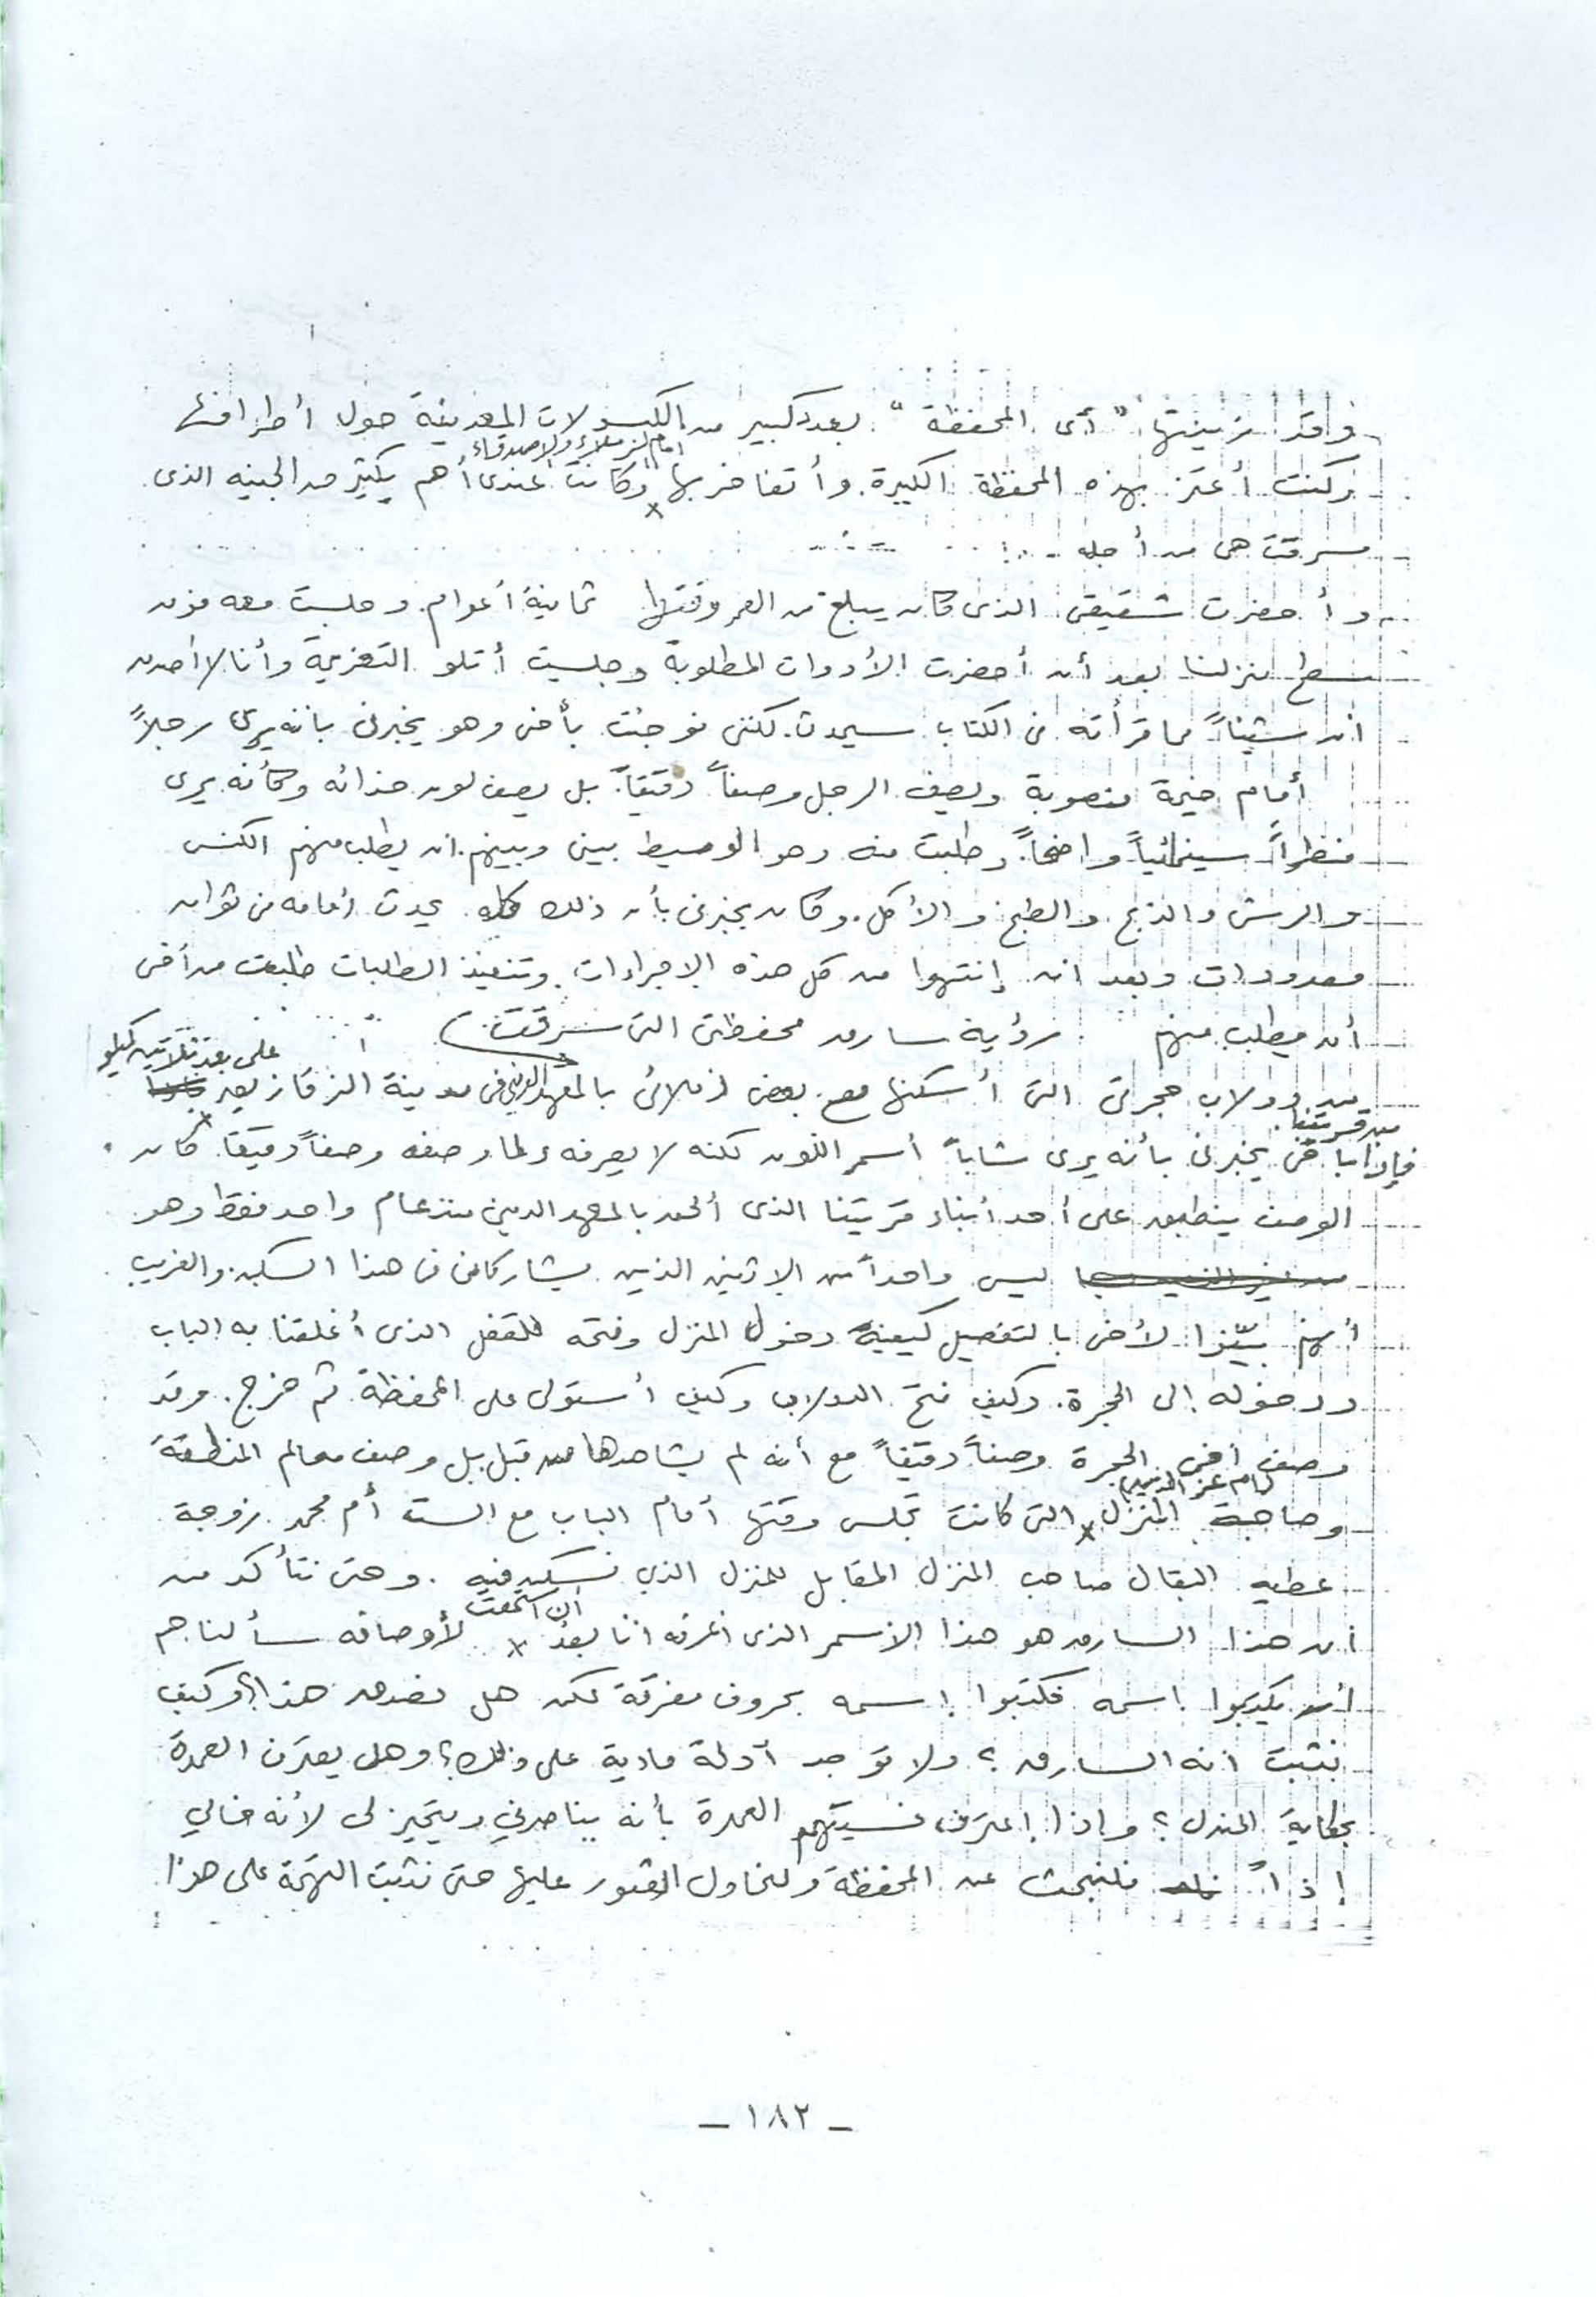 وقد زينتها "أى المحفظة" بعدد كبير من الكبسولات المعدنية حول أطرافها
وكنت أعتز بهذه المحفظة الكبيرة وأتفاخر بها أمام الزملاء والاصدقاء وكانت عندى أهم بكثير من الجنيه الذى
سرقت هى من أجله ..
وأحضرت شقيقى الذى كان يبلغ من العمر وقتها ثمانية أعوام وجلست معه فوق
سطح منزلنا بعد أن أحضرت الأدوات المطلوبة وجلست أتلو التعزيمة وأنا لا أصدق
ان شيئاً مما قرأته فى الكتاب سيحدث. لكننى فوجئت بأخى وهو يخبرنى بانه يرى رجلاً
أمام خيمة منصوبة ويصف الرجل وصفاً دقيقاً. بل يصف لون حذائه وكأنه يرى
منظراً سينمائياً واضحاً. وطلبت منه وهو الوسيط بينى وبينهم. ان يطلب منهم الكنس
والرش والذبح والطبخ والأكل. وكان يخبرنى بأن ذلك كله يحدث أمامه فى ثوان
معدودات وبعد ان إنتهوا من كل هذه الاجراءات وتنفيذ الطلبات طلبت من أخى
أن يطلب منهم رؤية سارق محفظتى التى سرقت
من دولاب حجرتى التى أسكنها مع بعض زملائى بالمعهد الدينى فى مدينة الزقازيق على بعد ثلاثين كيلو
من قريتنا
فإذا بأخى يخبرنى بأنه يرى شاباً أسمر اللون لكنه لا يعرفه ولما وصفه وصفاً دقيقاً كان
الوصف ينطبق على أحد أبناء قريتنا الذى ألتحق بالمعهد الدينى منذ عام واحد فقط وهو
ليس واحداً من الاثنين الذين يشاركانى فى هذا السكن. والغريب
أنهم بيّنوا لأخى بالتفصيل كيفية دخول المنزل وفتحه للقفل الذى أغلقنا به الباب
ودخوله إلى الحجرة. وكيف فتح الدولاب وكيف أستولى على المحفظة ثم خرج. وقد
وصف أخى الحجرة وصفاً دقيقاً مع أنه لم يشاهدها من قبل بل وصف معالم المنطقة
وصاحبة المنزل (أم عز الدين) التى كانت تجلس وقتها أمام الباب مع الست أم محمد زوجة
عطيه البقال صاحب المنزل المقابل للمنزل الذي نسكن فيه. وحتى نتأكد من
أن هذا السارق هو هذا الاسمر الذى اعرفه انا بعد أن استمعت لأوصافه سألناهم
أن يكتبوا اسمه فكتبوا إسمه بحروف مفرقة لكن هل نصدق هذا؟ وكيف
نثبت انه السارق؟ ولا توجد أدلة مادية على ذلك؟ وهل يعترف العمدة
بحكاية المندل؟ واذا إعترف فسيتهم العمدة بأنه يناصرني ويتحيز لى لأنه خالي
إذاً فلنبحث عن المحفظة ولنحاول العثور عليها حتى نثبت التهمة على هذا
- ١٨٢ -